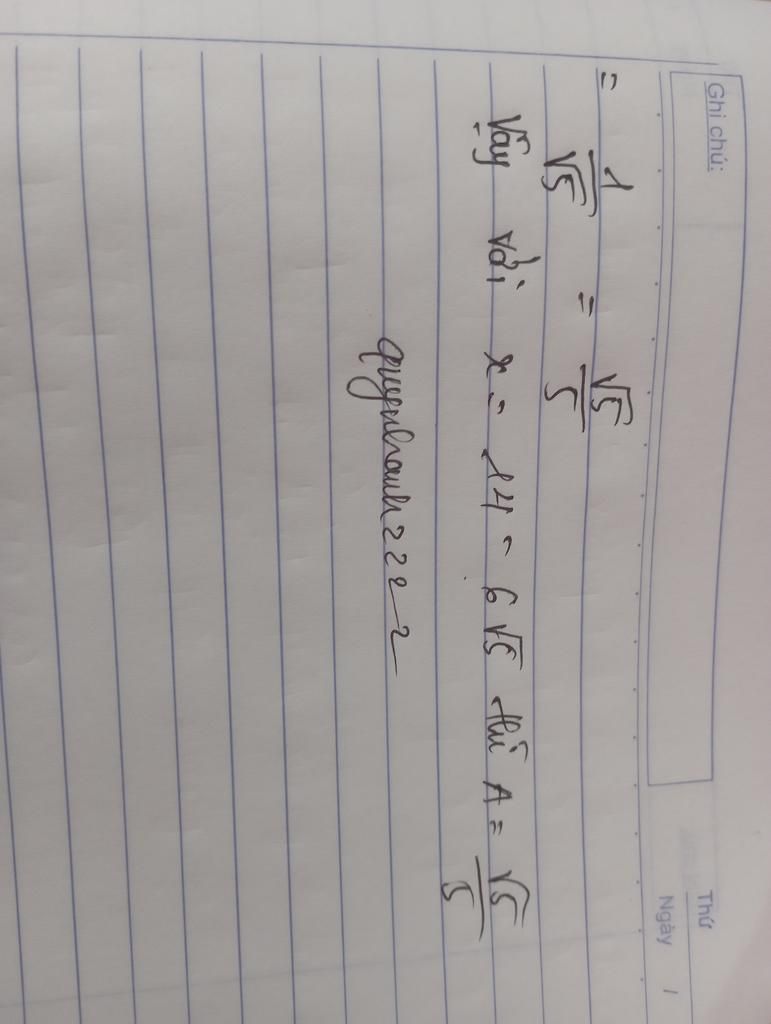 Ghi chú:
Thứ
Ngày /
= 1/√5 = √5/5
Vậy với x = 14 - 6√5 thì A = √5/5
quynhanh2222